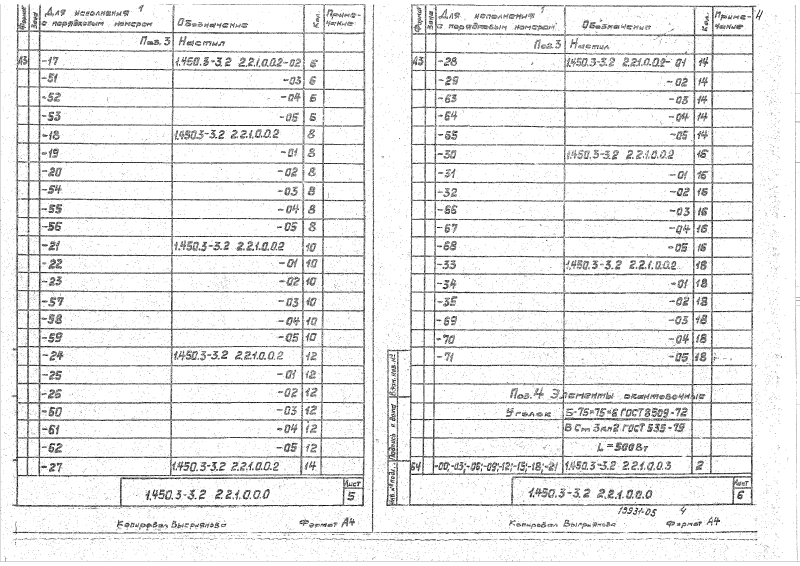 Формат Зона Для исполнения 1 с порядковым номером Обозначение Кол. Приме-чание
Поз.3 Настил
А3 -17 1.450.3-3.2 2.2.1.0.0.2-02 6
-51 -03 6
-52 -04 6
-53 -05 6
-18 1.450.3-3.2 2.2.1.0.0.2 8
-19 -01 8
-20 -02 8
-54 -03 8
-55 -04 8
-56 -05 8
-21 1.450.3-3.2 2.2.1.0.0.2 10
-22 -01 10
-23 -02 10
-57 -03 10
-58 -04 10
-59 -05 10
-24 1.450.3-3.2 2.2.1.0.0.2 12
-25 -01 12
-26 -02 12
-60 -03 12
-61 -04 12
-62 -05 12
-27 1.450.3-3.2 2.2.1.0.0.2 14
1.450.3-3.2 2.2.1.0.0.0 Лист 5
Копировал Выгриянова Формат А4
4
Формат Зона Для исполнения 1 с порядковым номером Обозначение Кол. Приме-чание
Поз.3 Настил
А3 -28 1.450.3-3.2 2.2.1.0.0.2-01 14
-29 -02 14
-63 -03 14
-64 -04 14
-65 -05 14
-30 1.450.3-3.2 2.2.1.0.0.2 16
-31 -01 16
-32 -02 16
-66 -03 16
-67 -04 16
-68 -05 16
-33 1.450.3-3.2 2.2.1.0.0.2 18
-34 -01 18
-35 -02 18
-69 -03 18
-70 -04 18
-71 -05 18
Поз.4 Элементы окантовочные
Уголок Б-75×75×6 ГОСТ 8509-72
В Ст 3кп2 ГОСТ 535-79
L=500Вт
Б4 -00;-03;-06;-09;-12;-15;-18;-21 1.450.3-3.2 2.2.1.0.0.3 2
Инв.№подл. Подпись и дата Взам.инв.№
1.450.3-3.2 2.2.1.0.0.0 Лист 6
19931-05 4
Копировал Выгриянова Формат А4